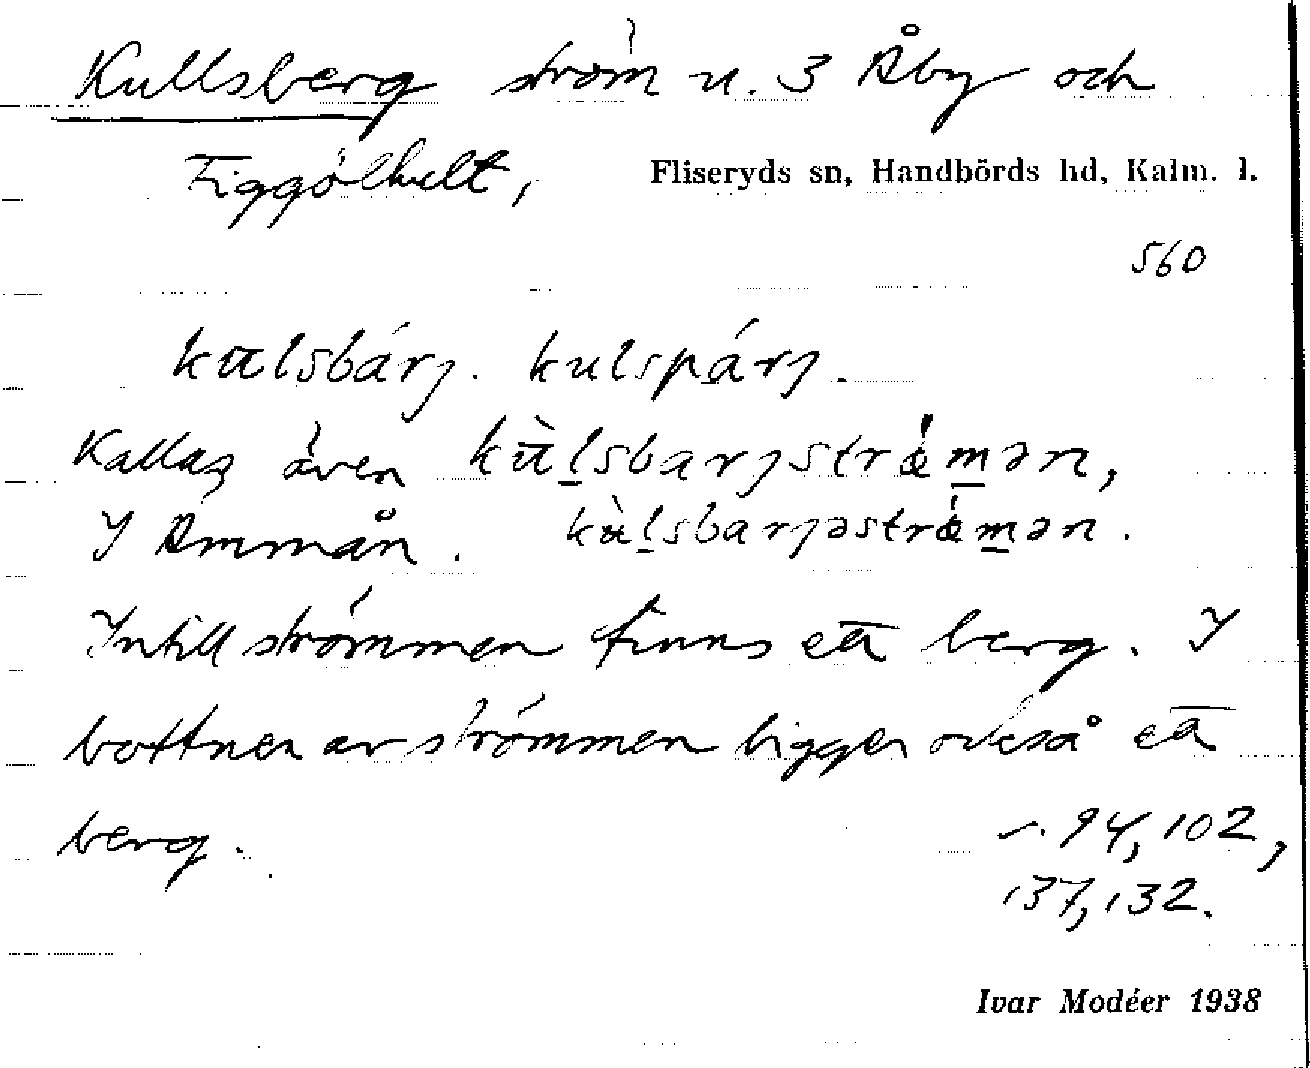 Kullsberg ström u. 3 Åby och
Figgölhult,
Fliseryds sn, Handbörds hd, Kalm. l.
560
kūlsbárȷ. kulspárȷ.
Kallas även kū̀l̠sbarȷstrǿm̠ən,
I Ammån. kùl̠sbarȷəstrǿm̠ən.
Intill strömmen finns ett berg. I
bottnen av strömmen ligger också ett
berg.
94, 102,
137, 132.
Ivar Modéer 1938